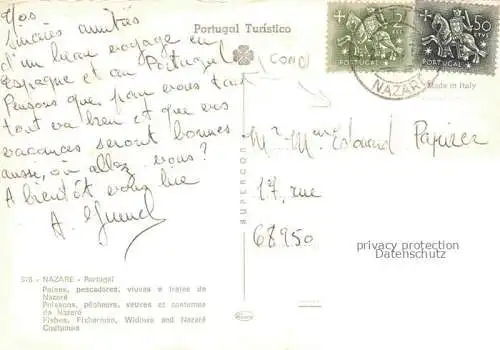 Sincères amitiés
d'un beau voyage en
Espagne et au Portugal
Pensons que pour vous tout
tout va bien et que vos
vacances seront bonnes
aussi, où allez-vous?
A bientôt vous lire
A.
578 - NAZARE - Portugal
Peixes, pescadores, viuvas e trajes de
Nazaré
Poissons, pêcheurs, veuves et costumes
de Nazaré
Fishes, Fishermen, Widows and Nazaré
Costumes
Portugal Turístico
Made in Italy
PORTUGAL
PORTUGAL
50
CTVS
NAZARÉ
Mr Mme Edouard
17, rue
68950
privacy protection
Datenschutz